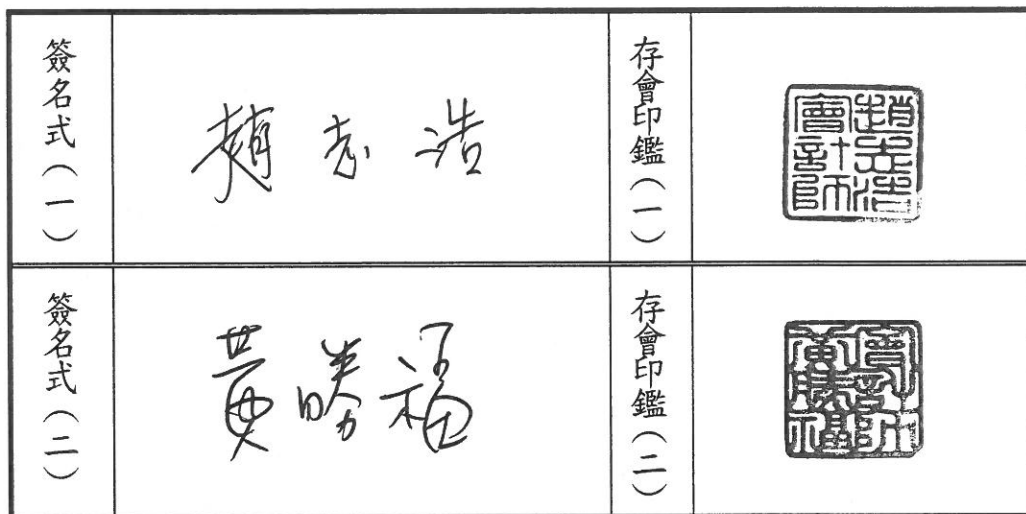 簽名式(一)
趙志浩
存會印鑑(一)
趙志浩會計師
簽名式(二)
黃勝福
存會印鑑(二)
會計師黃勝福